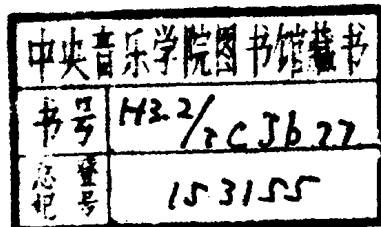 中央音乐学院图书馆藏书
书号 H3.2/zCJb77
总登记号 153155